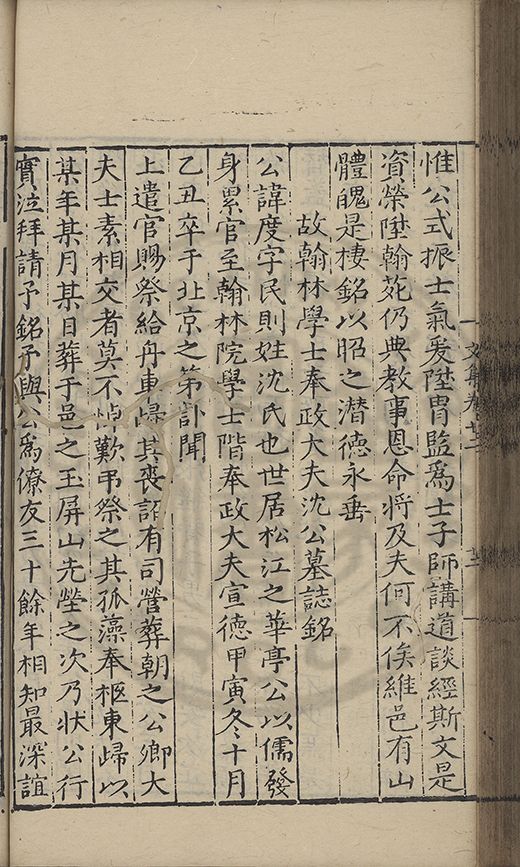 惟公式振士氣爰陞胄監爲士子師講道談經斯文是
資榮陞翰苑仍典教事恩命將及夫何不俟維邑有山
體魄是棲銘以昭之潜德永垂
故翰林學士奉政大夫沈公墓誌銘
公諱度字民則姓沈氏也世居松江之華亭公以儒發
身累官至翰林院學士階奉政大夫宣德甲寅冬十月
乙丑卒于北京之第訃聞
上遣官賜祭給舟車歸其喪詔有司營葬朝之公卿大
夫士素相交者莫不悼歎弔祭之其孤藻奉柩東歸以
某年某月某日葬于邑之玉屏山先塋之次乃狀公行
實泣拜請予銘予與公爲僚友三十餘年相知最深誼
文集卷廿二